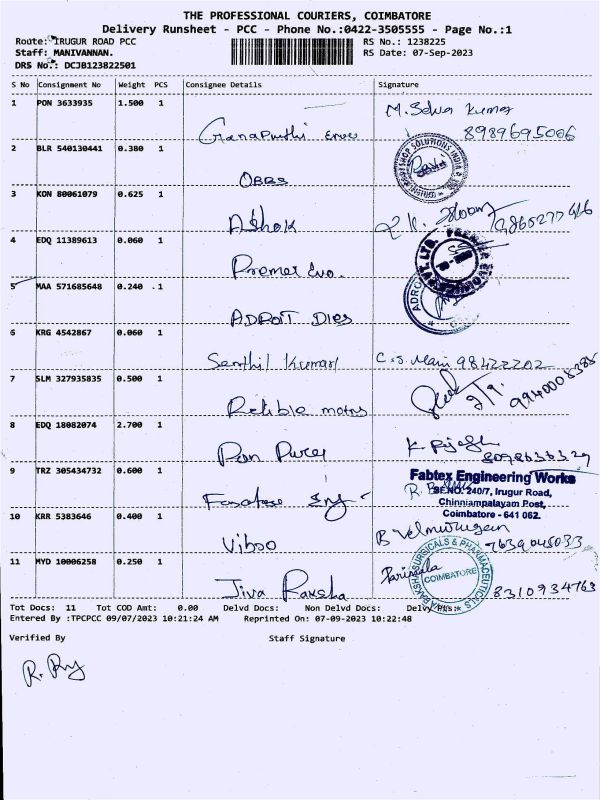 THE PROFESSIONAL COURIERS, COIMBATORE
Delivery Runsheet - PCC - Phone No.:0422-3505555 - Page No.:1
Route: IRUGUR ROAD PCC
RS No.: 1238225
Staff: MANIVANNAN.
RS Date: 07-Sep-2023
DRS No.: DCJB123822501
S No Consignment No Weight PCS Consignee Details Signature
1 PON 3633935 1.500 1 M. Selva Kumar
8989695006
2 BLR 540130441 0.380 1
OBBS
3 KON 80061079 0.625 1
Ashok
4 EDQ 11389613 0.060 1
Premer Evo.
5 MAA 571685648 0.240 1
ADROIT DIES
6 KRG 4542867 0.060 1
Senthil Kumar C.S Mani 98422202
7 SLM 327935835 0.500 1
Relible motors 9940008388
8 EDQ 18082074 2.700 1
9 TRZ 305434732 0.600 1
Fabtex Engineering Works
SF.NO. 240/7, Irugur Road,
Chinniampalayam Post,
Coimbatore - 641 062.
10 KRR 5383646 0.400 1
B Velmurugan
Vibso
11 MYD 10006258 0.250 1
JIVA RAKSHA SURGICALS & PHARMACEUTICALS
COIMBATORE
Parimala
Jiva Raksha 8310934763
Tot Docs: 11 Tot COD Amt: 0.00 Delvd Docs: Non Delvd Docs: Delvy Hrs:
Entered By :TPCPCC 09/07/2023 10:21:24 AM Reprinted On: 07-09-2023 10:22:48
Verified By Staff Signature